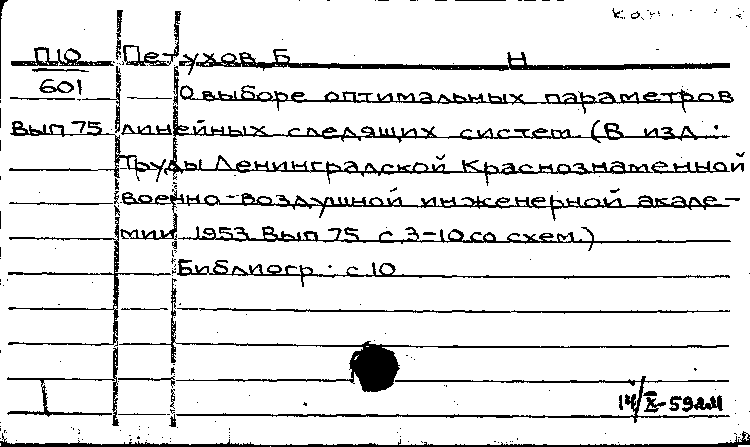 П10 Петухов, Б Н
601 О выборе оптимальных параметров
Вып 75 линейных следящих систем (В изд :
Труды Ленинградской Краснознаменной
военно-воздушной инженерной акаде-
мии 1953 Вып 75 с 3-10 со схем.)
Библиогр : с 10